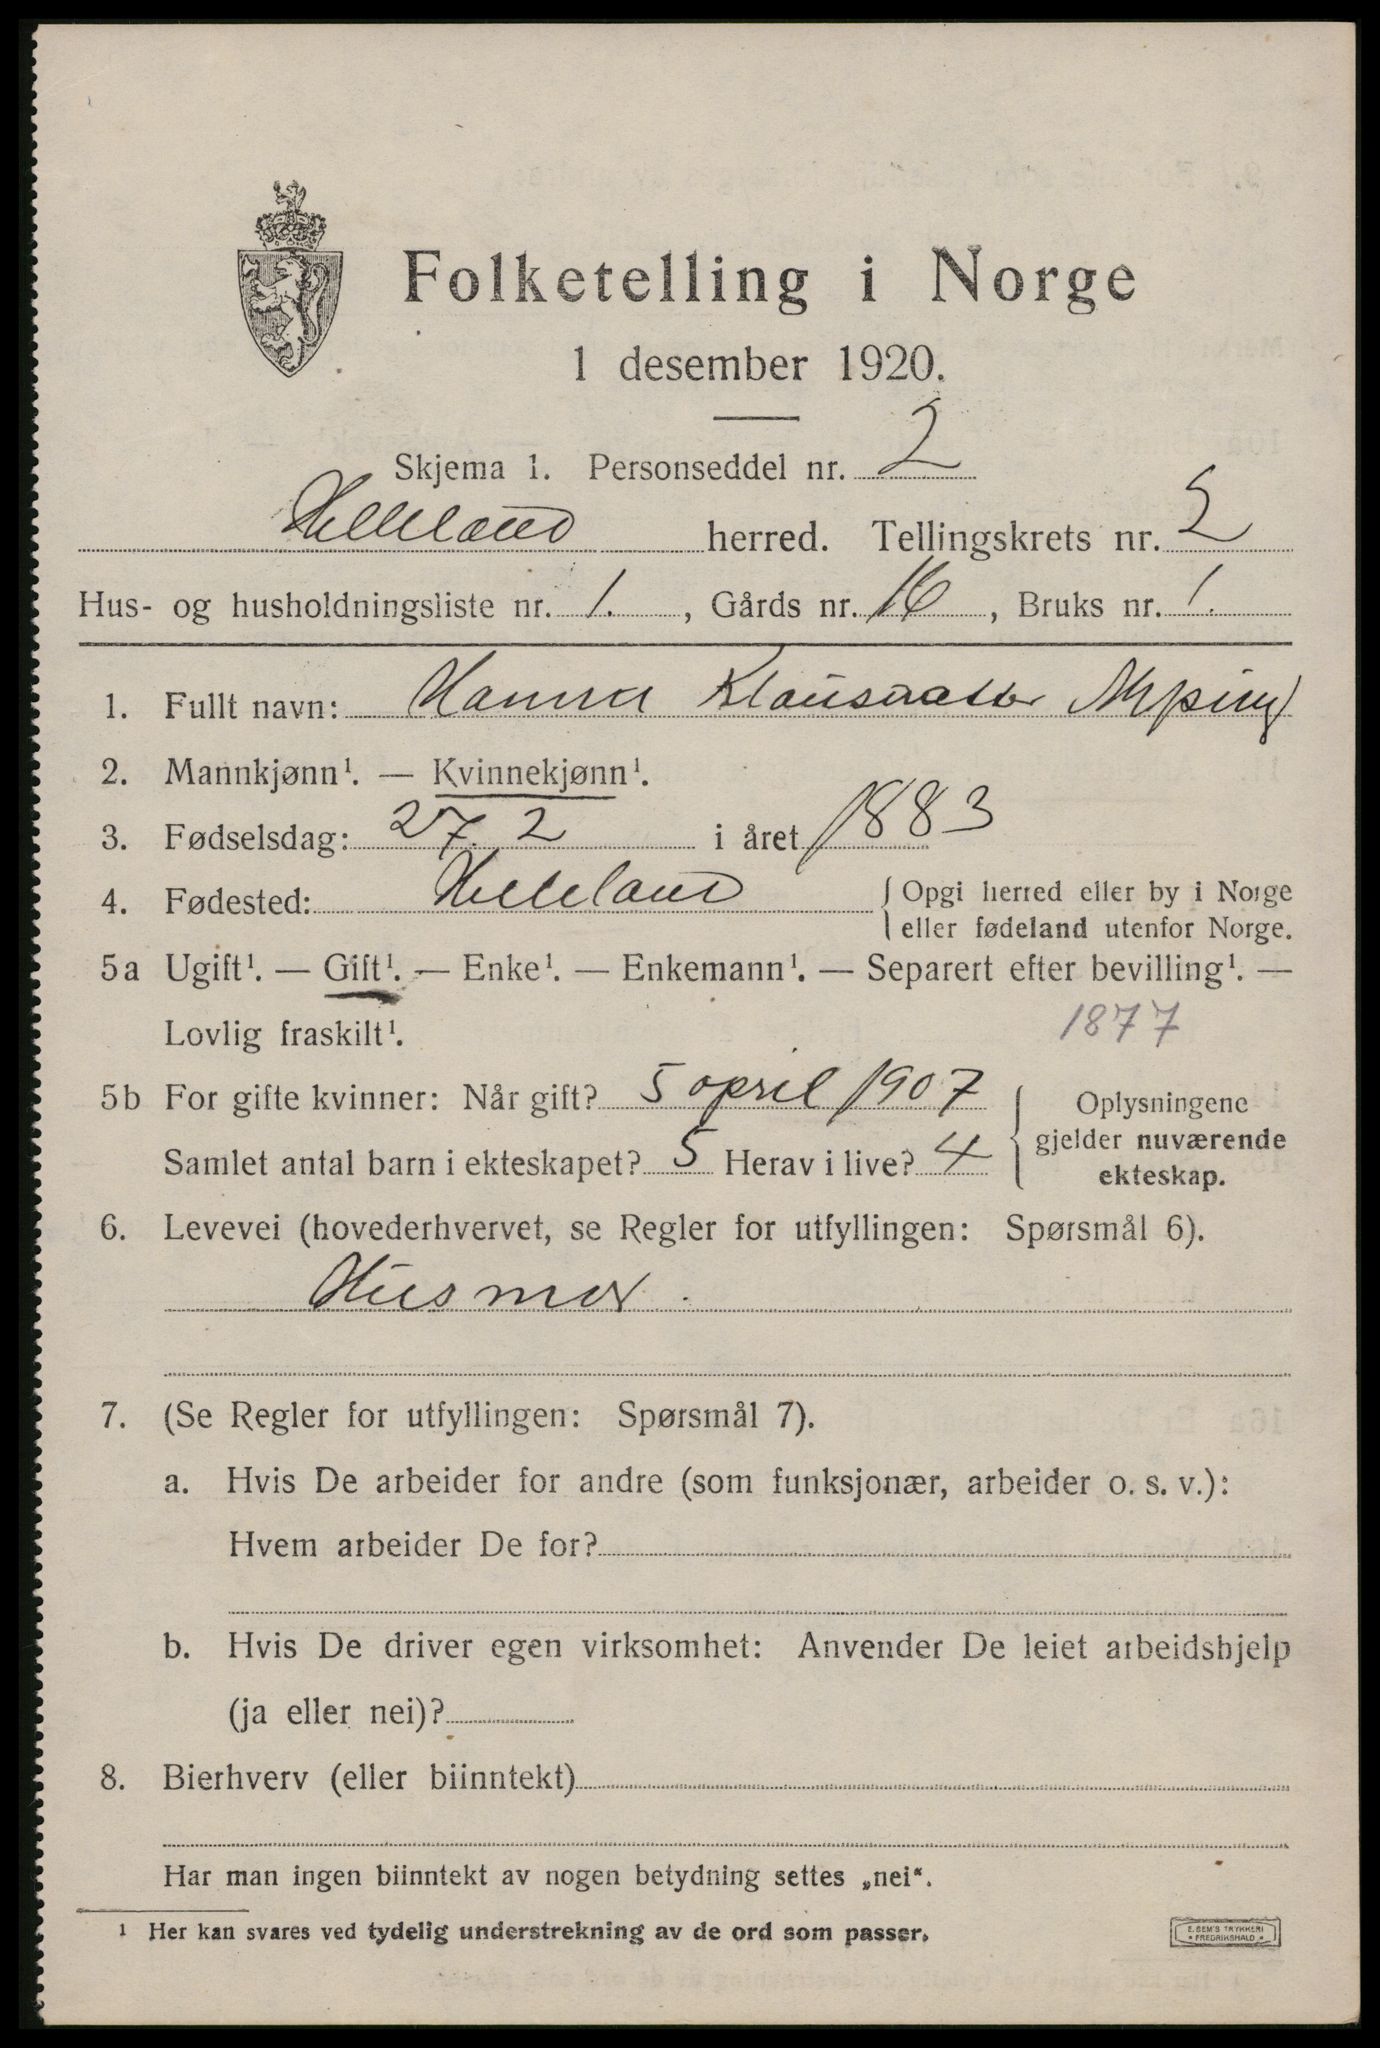 Folketelling i Norge
1 desember 1920.
Skjema 1. Personseddel nr. 2
Helleland herred. Tellingskrets nr. 2
Hus- og husholdningsliste nr. 1. , Gårds nr. 16 , Bruks nr. 1.
1. Fullt navn: Hanna Klausdatter
2. Mannkjønn¹. — Kvinnekjønn¹.
3. Fødselsdag: 27. 2 i året 1883
4. Fødested: Helleland { Opgi herred eller by i Norge
eller fødeland utenfor Norge.
5a Ugift¹. — Gift¹. — Enke¹. — Enkemann¹. — Separert efter bevilling¹. —
Lovlig fraskilt¹. 1877
5b For gifte kvinner: Når gift? 5 april 1907
Samlet antal barn i ekteskapet? 5 Herav i live? 4
Oplysningene
gjelder nuværende
ekteskap.
6. Levevei (hovederhvervet, se Regler for utfyllingen: Spørsmål 6).
Husmor.
7. (Se Regler for utfyllingen: Spørsmål 7).
a. Hvis De arbeider for andre (som funksjonær, arbeider o. s. v.):
Hvem arbeider De for?
b. Hvis De driver egen virksomhet: Anvender De leiet arbeidshjelp
(ja eller nei)?
8. Bierhverv (eller biinntekt)
Har man ingen biinntekt av nogen betydning settes „nei“.
¹ Her kan svares ved tydelig understrekning av de ord som passer.
E. SEM'S TRYKKERI
* FREDRIKSHALD *